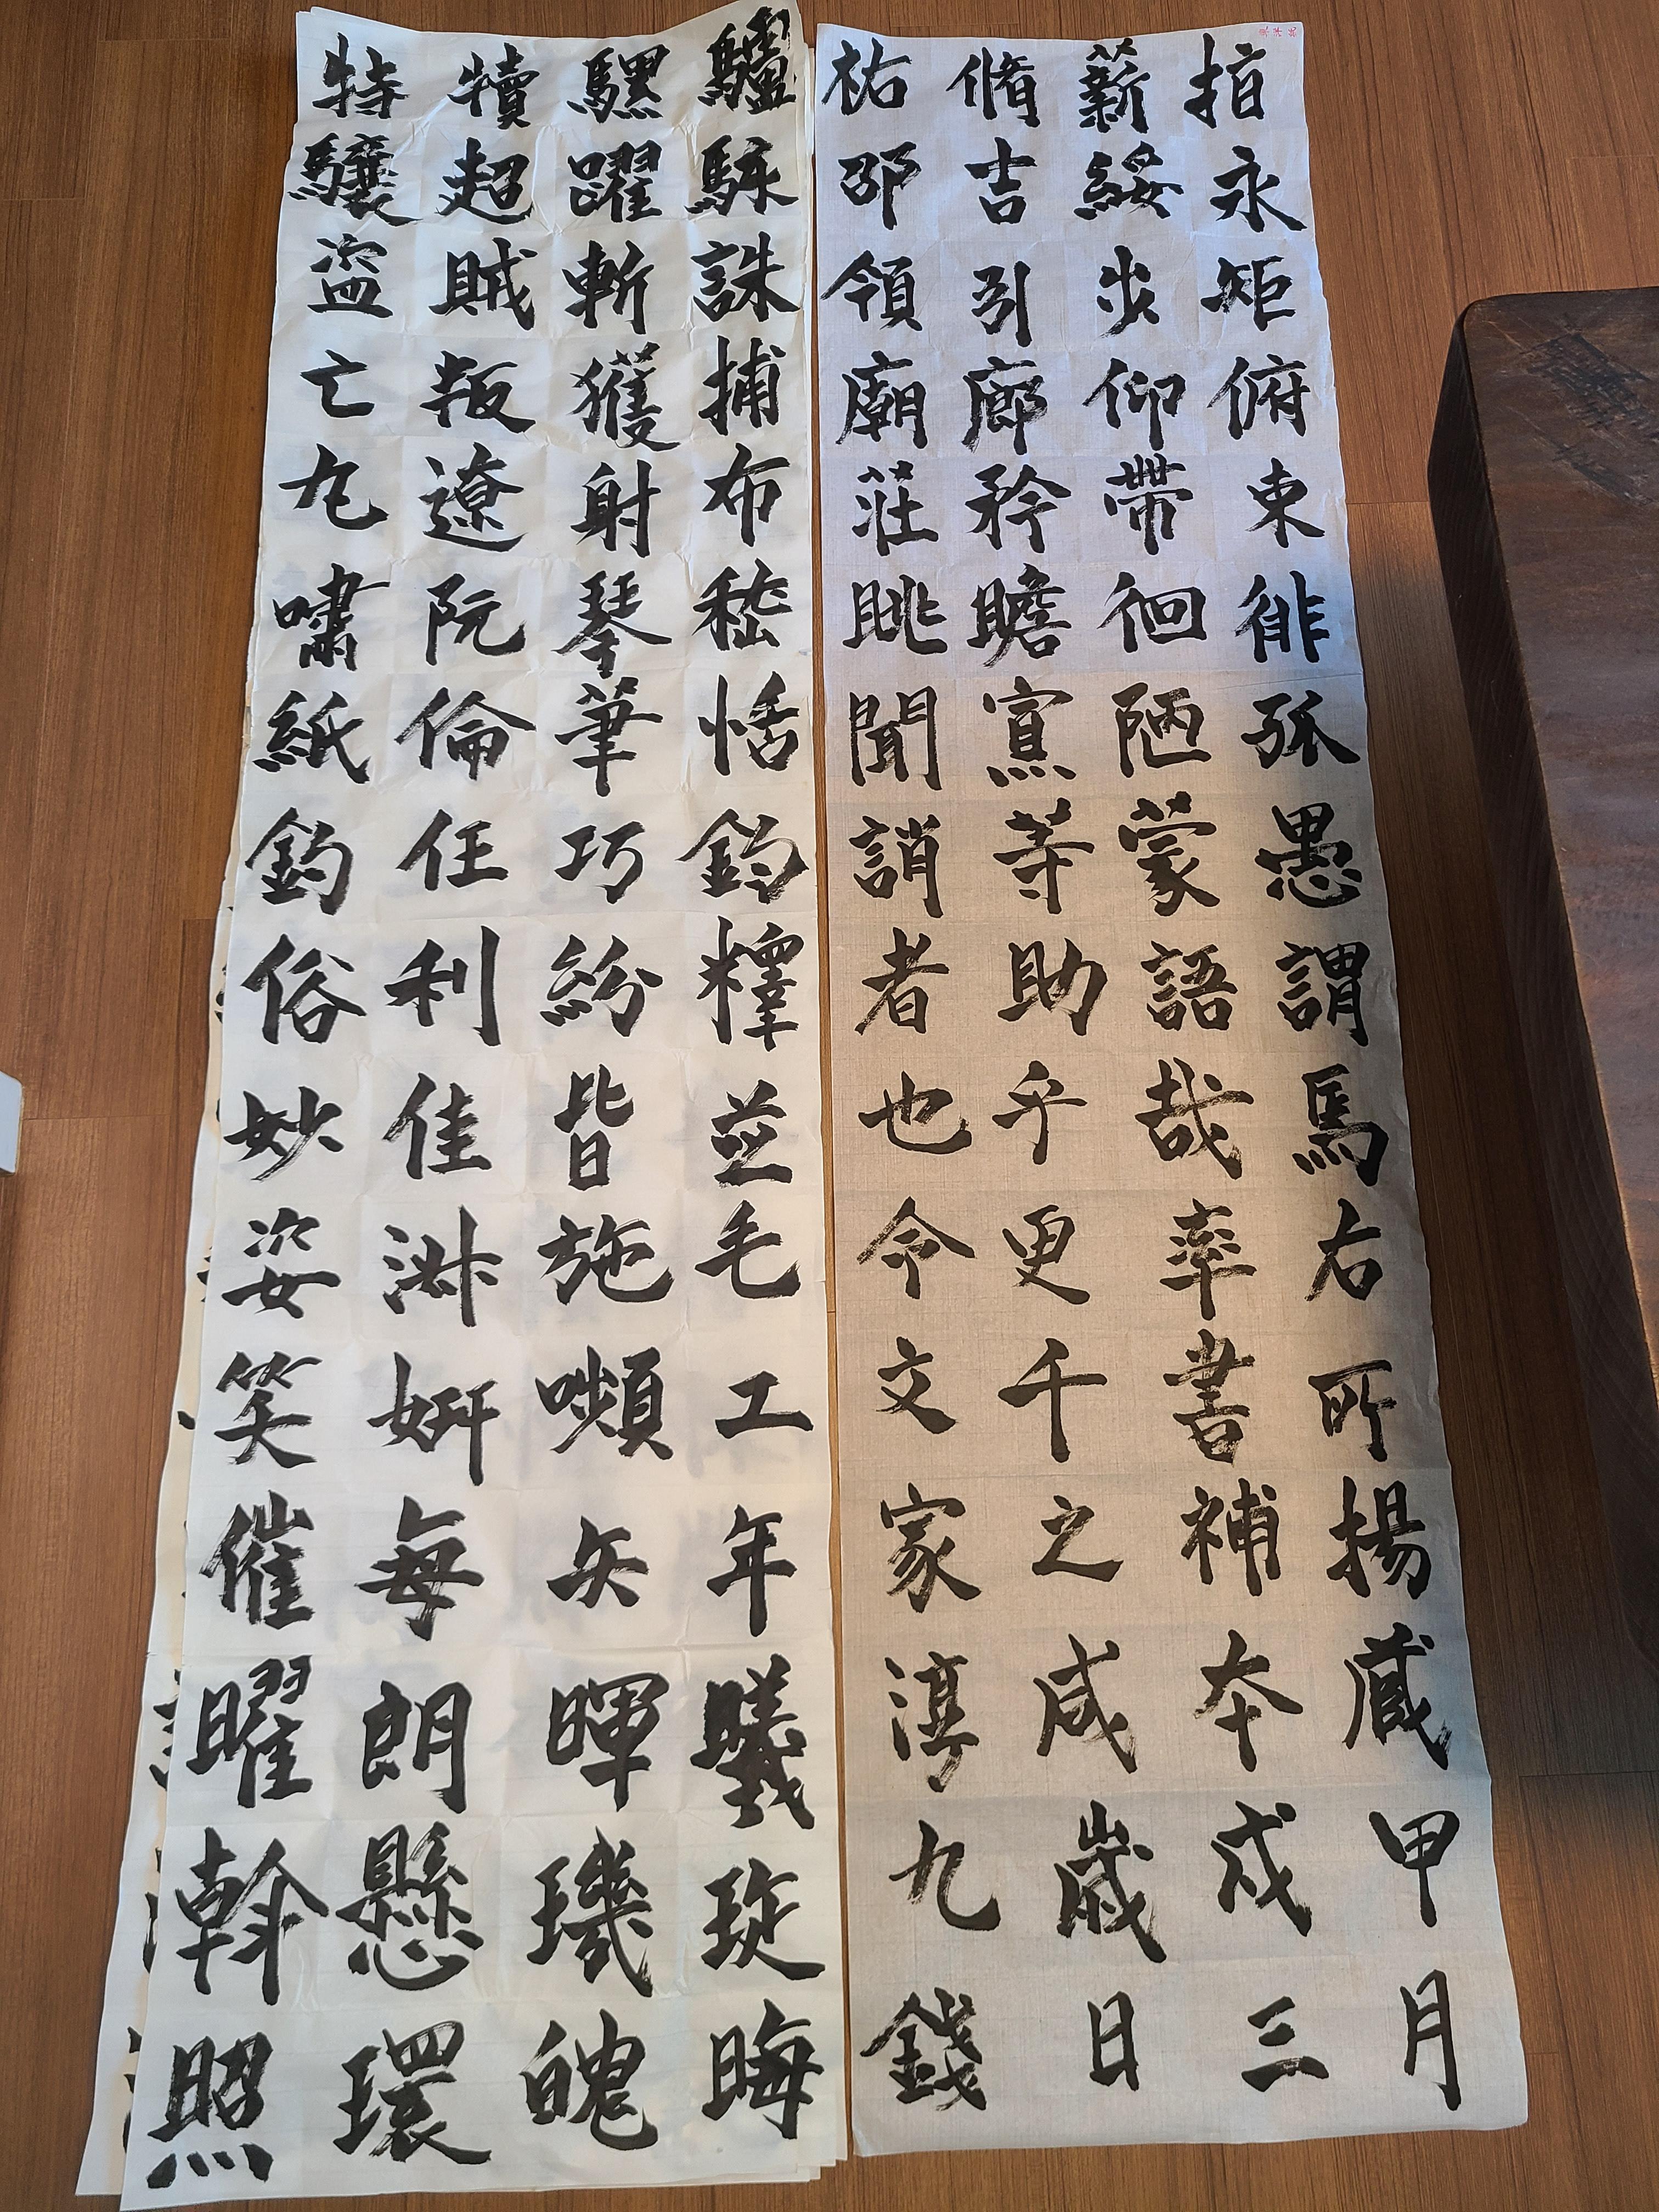 驢騾犢特
駭躍超驤
誅斬賊盜
捕獲叛亡
布射遼丸
嵇琴阮嘯
恬筆倫紙
鈞巧任釣
釋紛利俗
並皆佳妙
毛施淑姿
工嚬妍笑
年矢每催
曦暉朗曜
琁璣懸斡
晦魄環照
指薪脩祐
永綏吉邵
矩步引領
俯仰廊廟
束帶矜莊
徘徊瞻眺
孤陋寡聞
愚蒙等誚
謂語助者
焉哉乎也
右率更令
所書千文
揚補之家
藏本咸淳
甲戌歲九
月三日錢